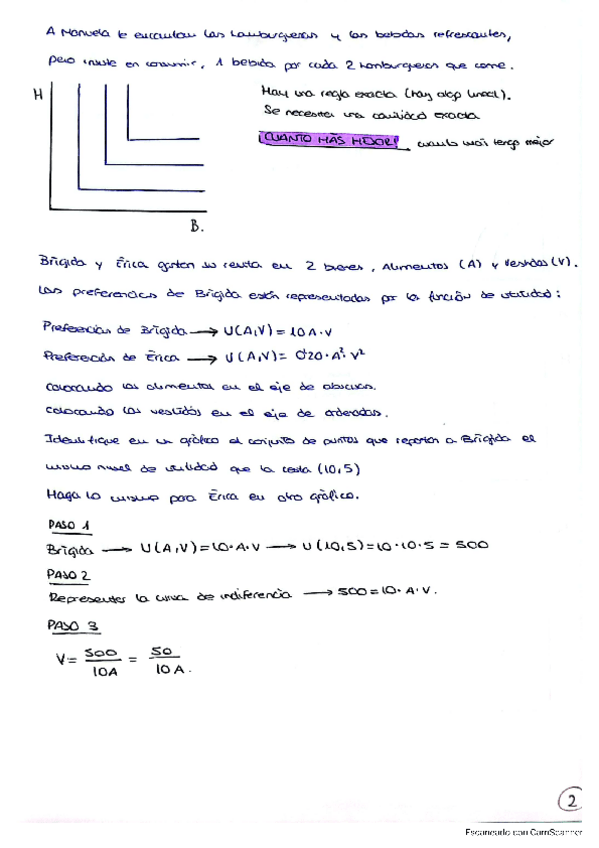 A Manuela le encantan las hamburguesas y las bebidas refrescantes,
pero insiste en consumir, 1 bebida por cada 2 hamburguesas que come.
H
Hay una regla exacta (hay algo lineal).
Se necesita una cantidad exacta
¡CUANTO MÁS MEJOR! cuanto más tengo mejor
B.
Brígida y Érica gastan su renta en 2 bienes, Alimentos (A) y Vestidos (V).
Las preferencias de Brígida están representadas por la función de utilidad:
Preferencias de Brígida → U(A,V) = 10A·V
Preferencias de Érica → U(A,V) = 0'20·A²·V²
colocando los alimentos en el eje de abscisas.
colocando los vestidos en el eje de ordenadas.
Identifique en un gráfico el conjunto de puntos que reportan a Brígida el
mismo nivel de utilidad que la cesta (10,5)
Haga lo mismo para Érica en otro gráfico.
PASO 1
Brígida → U(A,V) = 10·A·V → U(10,5) = 10·10·5 = 500
PASO 2
Representar la curva de indiferencia → 500 = 10·A·V.
PASO 3
V = 500/10A = 50/10A.
2
Escaneado con CamScanner